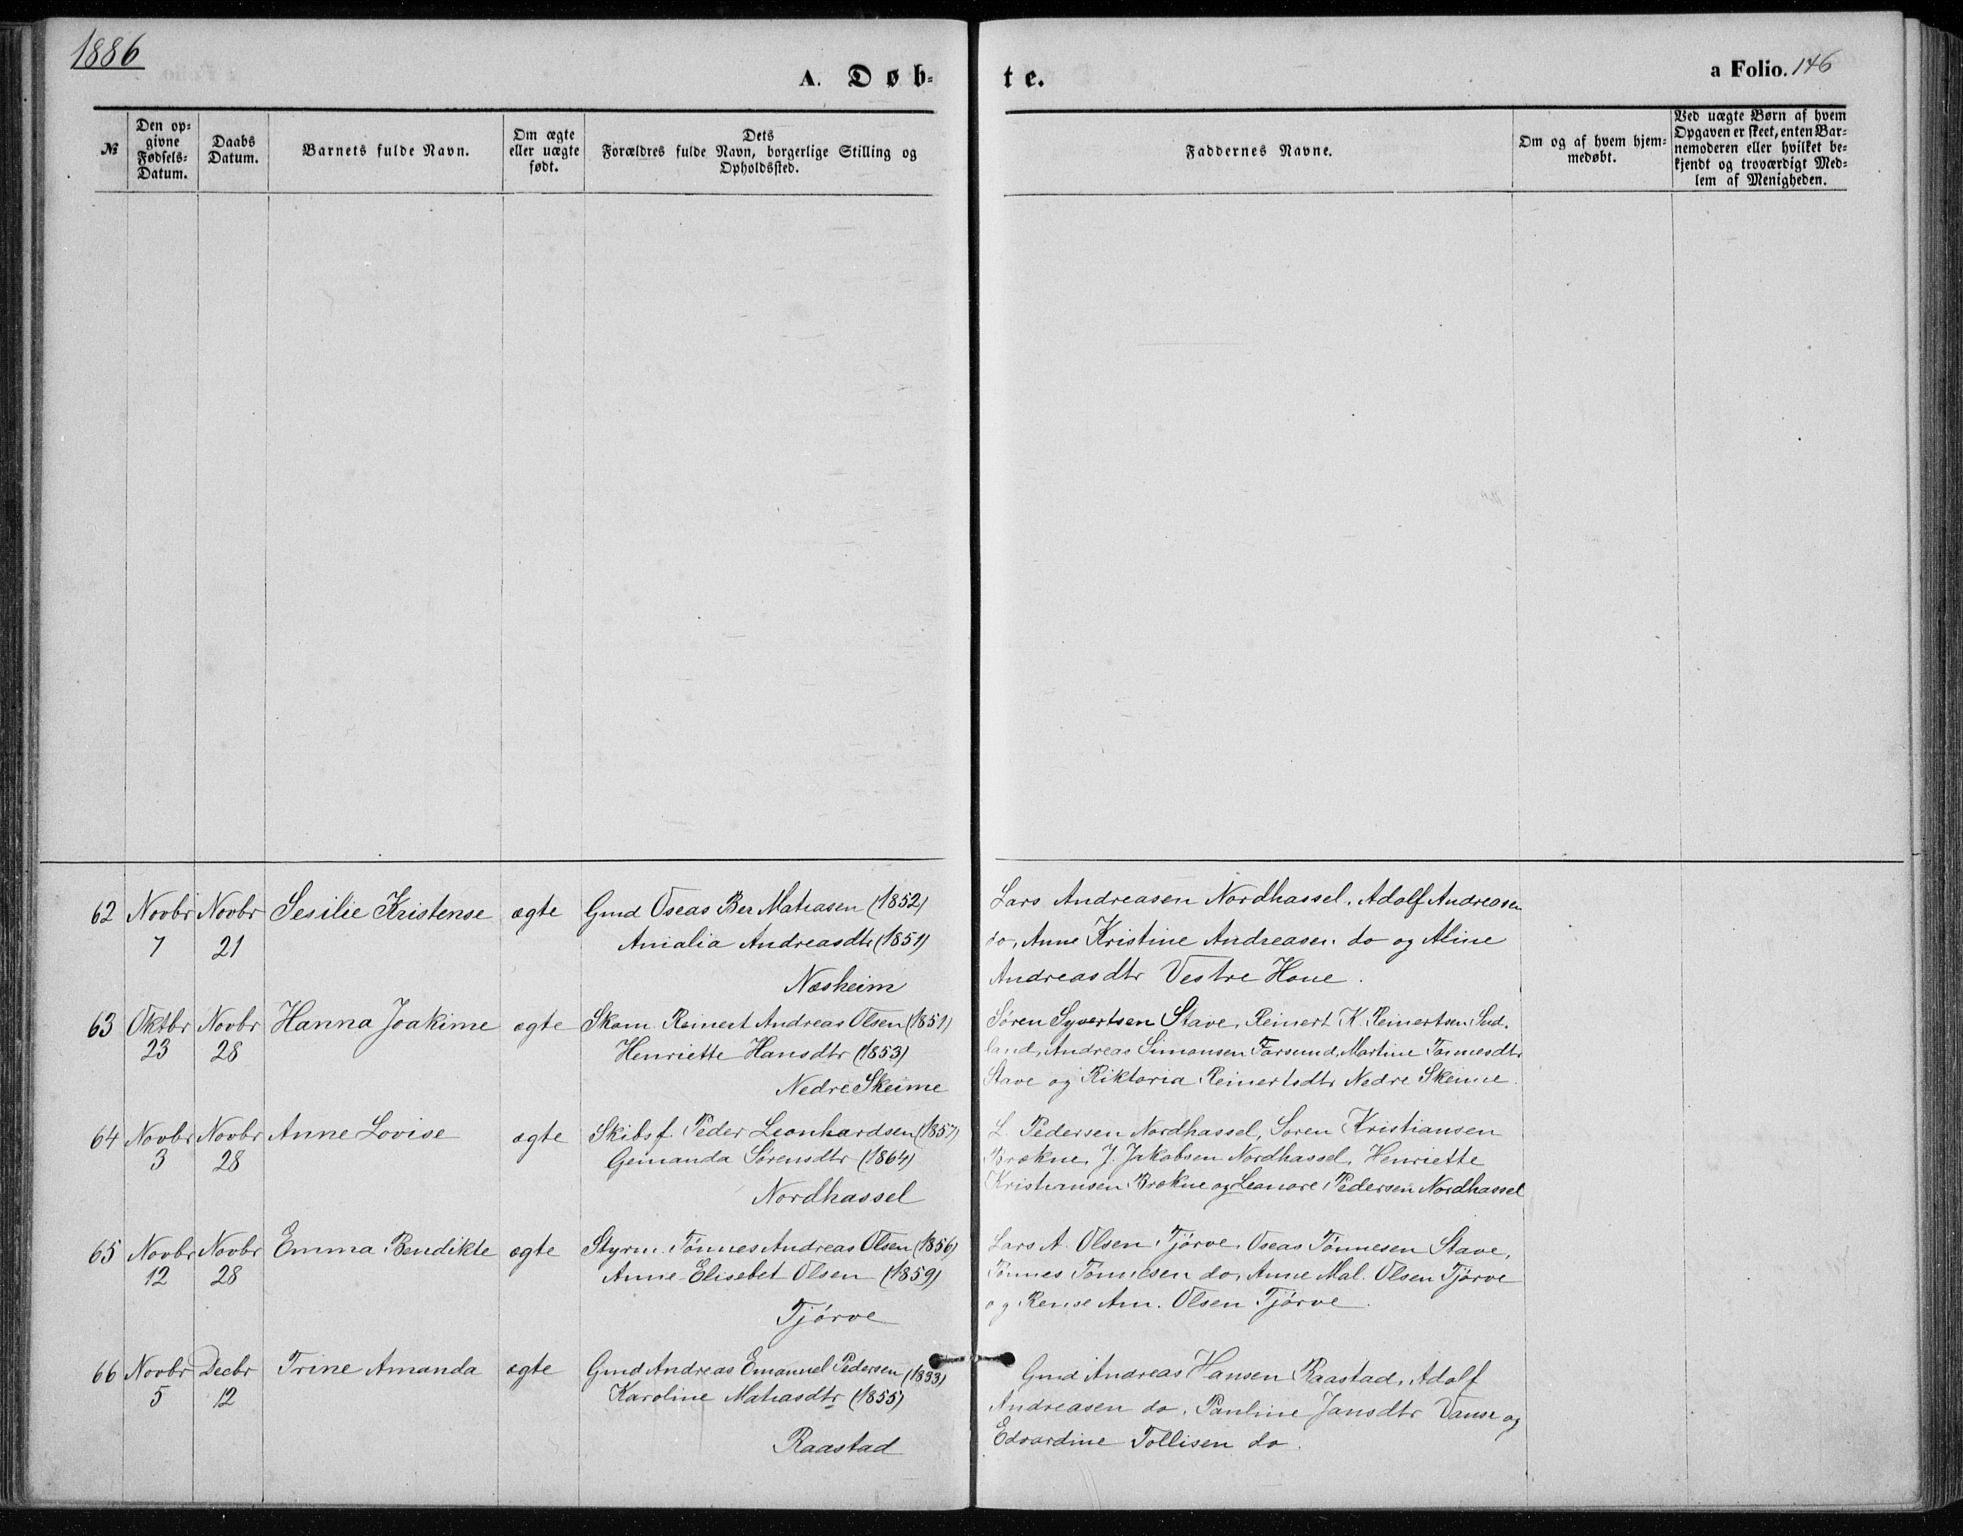 1886
A. Døb-
te.
a Folio. 146
№
Den op-
givne
Fødsels-
Datum.
Daabs
Datum.
Barnets fulde Navn.
Om ægte
eller uægte
født.
Dets
Forældres fulde Navn, borgerlige Stilling og
Opholdssted.
Faddernes Navne.
Om og af hvem hjem-
medøbt.
Ved uægte Børn af hvem
Opgaven er skeet, enten Bar-
nemoderen eller hvilket be-
kjendt og troværdigt Med-
lem af Menigheden.
62 Novbr Novbr Sesilie Kristense ægte Gmd Oseas Ber Matiasen (1852)
7 21 Amalia Andreasdtr (1851)
Næsheim
Lars Andreasen Nordhassel, Adolf Andreasen
do, Anne Kristine Andreasen do og Aline
Andreasdtr Vestre Haue.
63 Oktbr Novbr Hanna Joakime ægte Skom. Reinert Andreas Olsen (1851)
23 28 Henriette Hansdtr (1853)
Nedre Skeime
Søren Syvertsen Stave, Reinert K. Reinertsen Sud-
land, Andreas Simonsen Farsund, Martine Tønnesdtr
Stave og Viktoria Reinertsdtr Nedre Skeime.
64 Novbr Novbr Anne Lovise ægte Skibsf. Peder Leonhardsen (1857)
3 28 Gemanda Sørensdtr (1864)
Nordhassel
L. Pedersen Nordhassel, Søren Kristiansen
Brækne, J. Jakobsen Nordhassel, Henriette
Kristiansen Brækne og Leonore Pedersen Nordhassel
65 Novbr Novbr Emma Bendikte ægte Styrm. Tønnes Andreas Olsen (1856)
12 28 Anne Elisebet Olsen (1859)
Tjørve
Lars A. Olsen Tjørve, Oseas Tønnesen Stave,
Tønnes Tønnesen do, Anne Mal. Olsen Tjørve
og Rense Am. Olsen Tjørve.
66 Novbr Decbr Trine Amanda ægte Gmd Andreas Emanuel Pedersen (1853)
5 12 Karoline Matiasdtr (1855)
Raastad
Gmd Andreas Hansen Raastad, Adolf
Andreasen do, Pauline Jansdtr Vanse og
Edvardine Tollisen do.